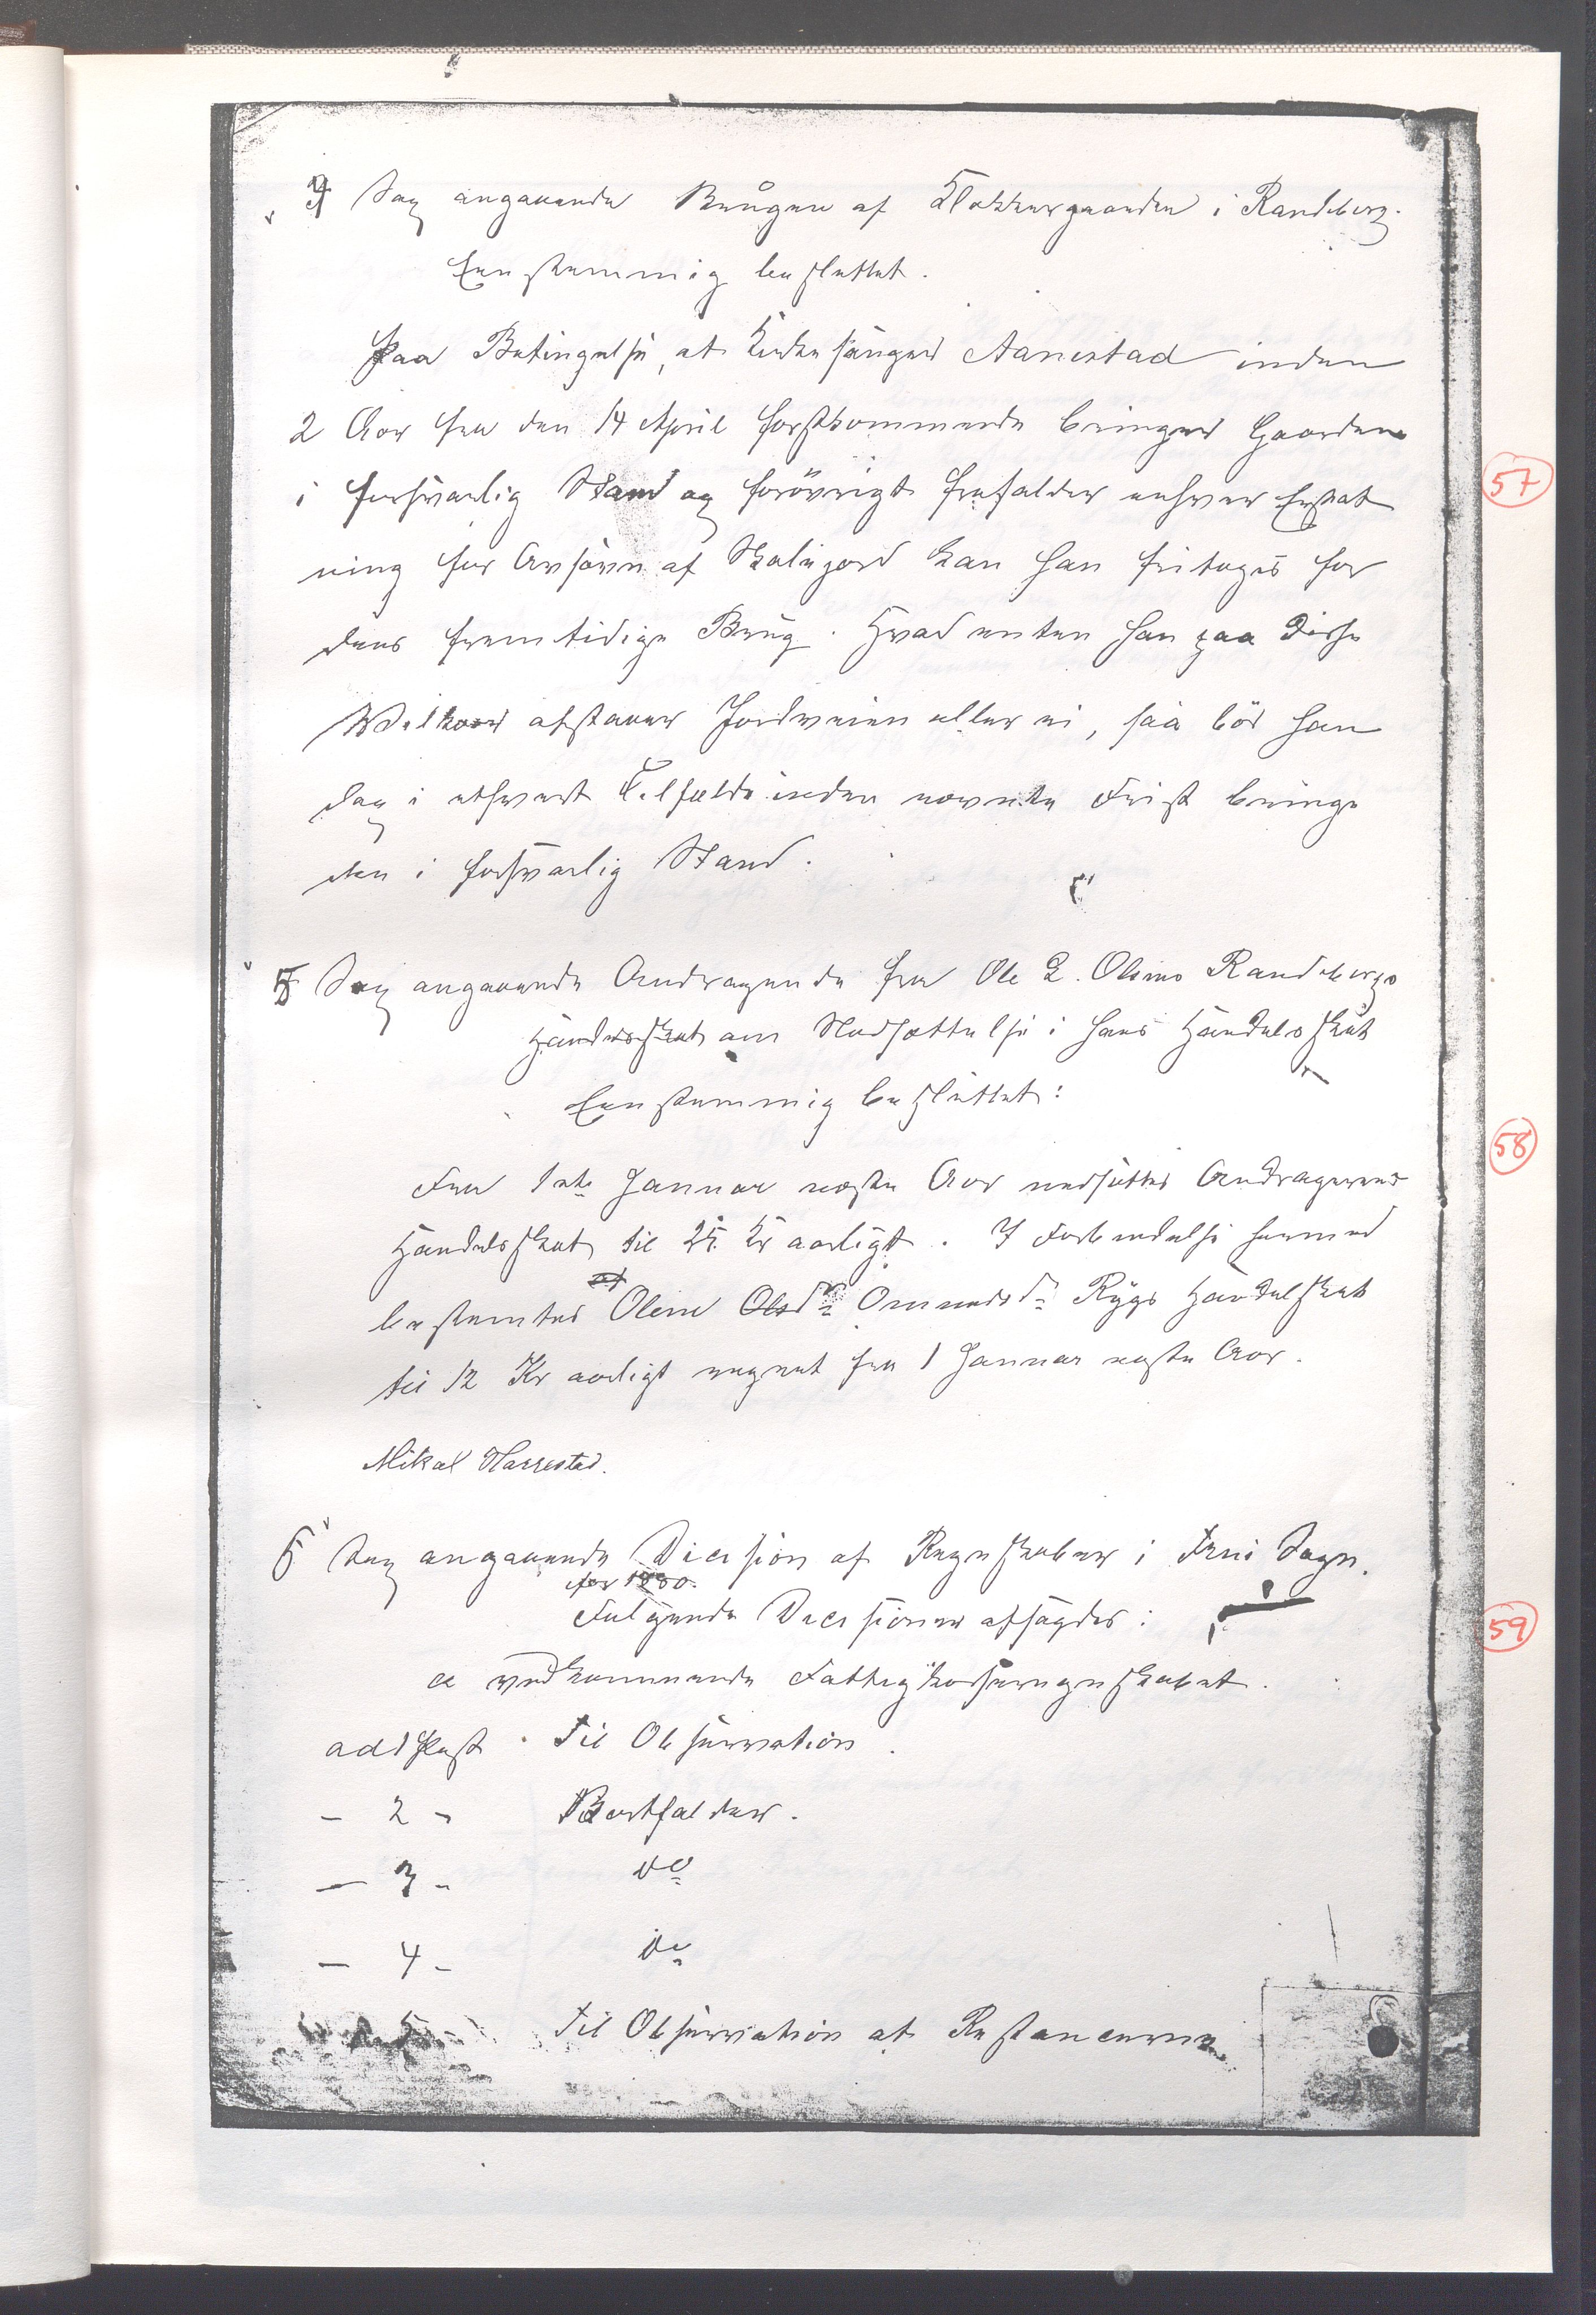 4 Sag angaaende Brugen af Klokkergaarden i Randeberg.
Eenstemmig besluttet.
Paa Betingelse, at Kirkesanger Aanestad inden
2 Aar fra den 14 April førstkommende bringer Gaarden
i forsvarlig Stand og forövrigt frafalder enhver Erstat
ning for Avsavn af Skolejord kan han fritages for
dens fremtidige Brug. Hvad enten han paa disse
Vilkaar afstaaer Jordveien eller ei, saa bör han
dog i ethvert Tilfælde inden nævnte Frist bringe
den i forsvarlig Stand.
57
5 Sag angaaende Andragende fra Ole L. Olsens Randebergs
Handelsskat om Nedsættelse i hans Handelsskat
Eenstemmig besluttet:
58
Fra 1ste Januar næste Aar nedsættes Andragerens
Handelsskat til 24 Kr aarligt. I Forbindelse hermed
bestemtes at Olene Olsdr Omundsdr Rygs Handelskat
til 12 Kr aarligt regnet fra 1 Januar næste Aar.
Mikal Harrestad.
6 Sag angaaende Decision af Regnskaber i Fem Sogn.
for 1880.
Følgende Decisioner afsagdes:
59
a vedkommende Fattigkasseregnskabet.
ad 1 Post Til Observation.
- 2 - Bortfalder.
- 3 - do
- 4 - do
- 5 - Til Observation at Restancerne